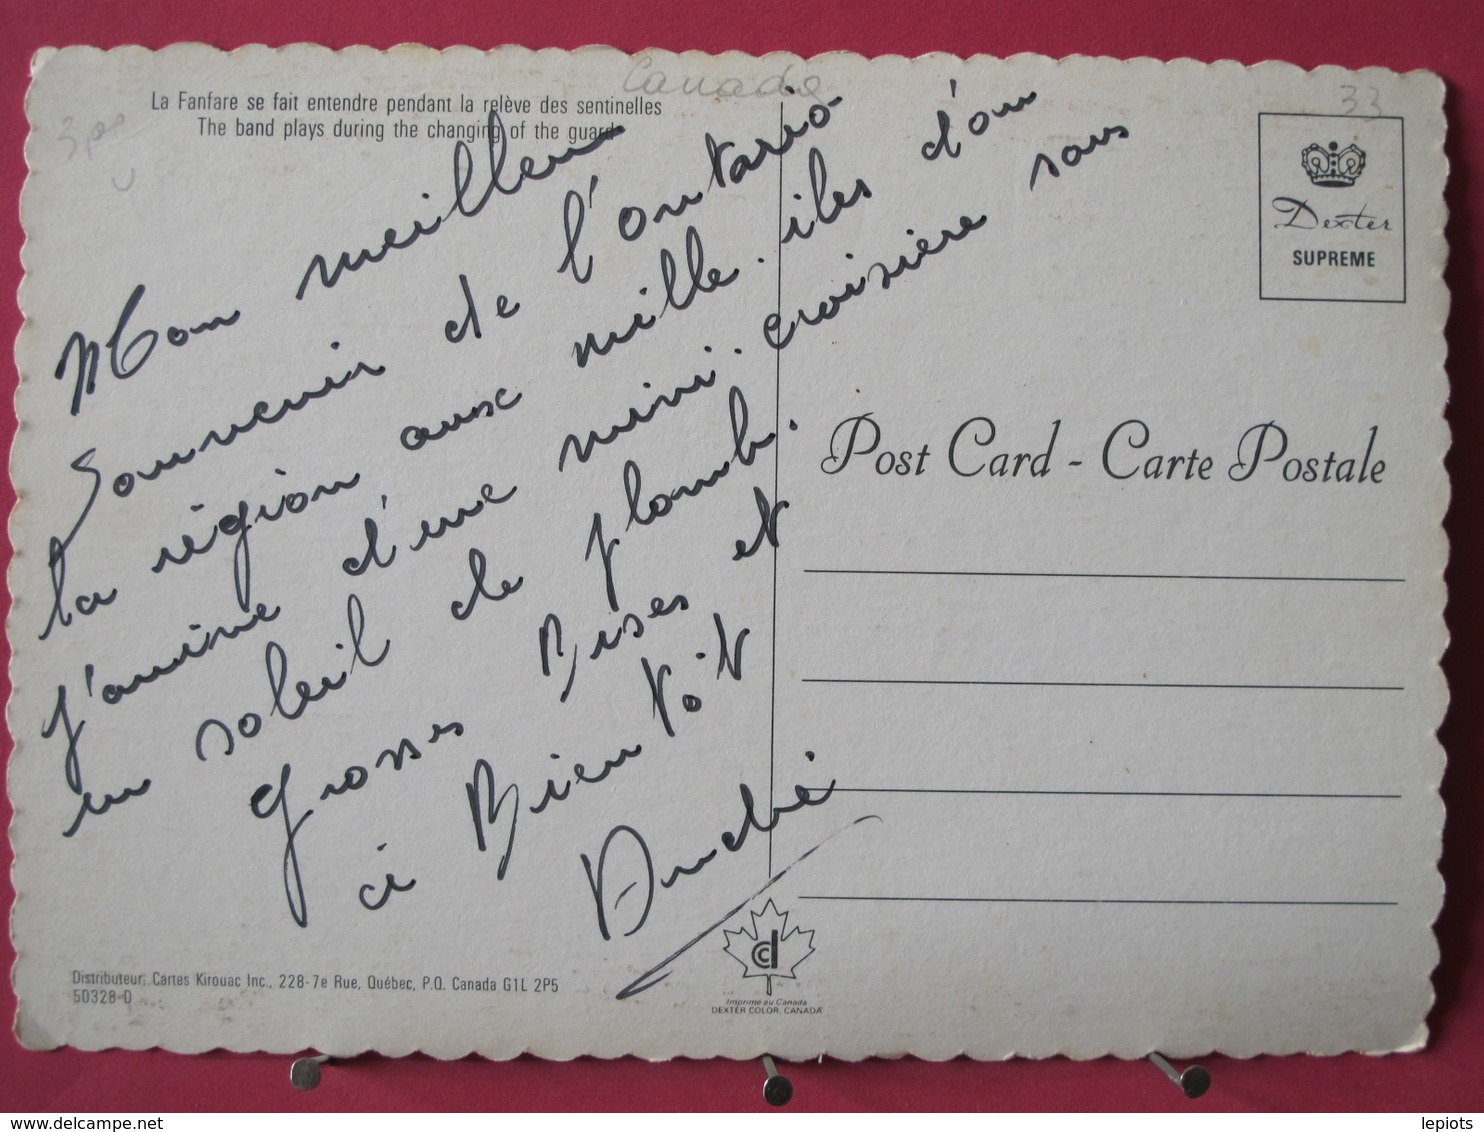 Canada
33
La Fanfare se fait entendre pendant la relève des sentinelles
The band plays during the changing of the guard
Dexter
SUPREME
Mon meilleur
Souvenir de l'ontario
la région aux mille.iles d'ou
j'arrive d'une mini.croisière sous
un soleil de plomb.
grosses Bises et
à Bientôt
André
Post Card - Carte Postale
Distributeur: Cartes Kirouac Inc., 228-7e Rue, Québec, P.Q. Canada G1L 2P5
50328-D
Imprimé au Canada
DEXTER COLOR, CANADA
delcampe.net
lepiots